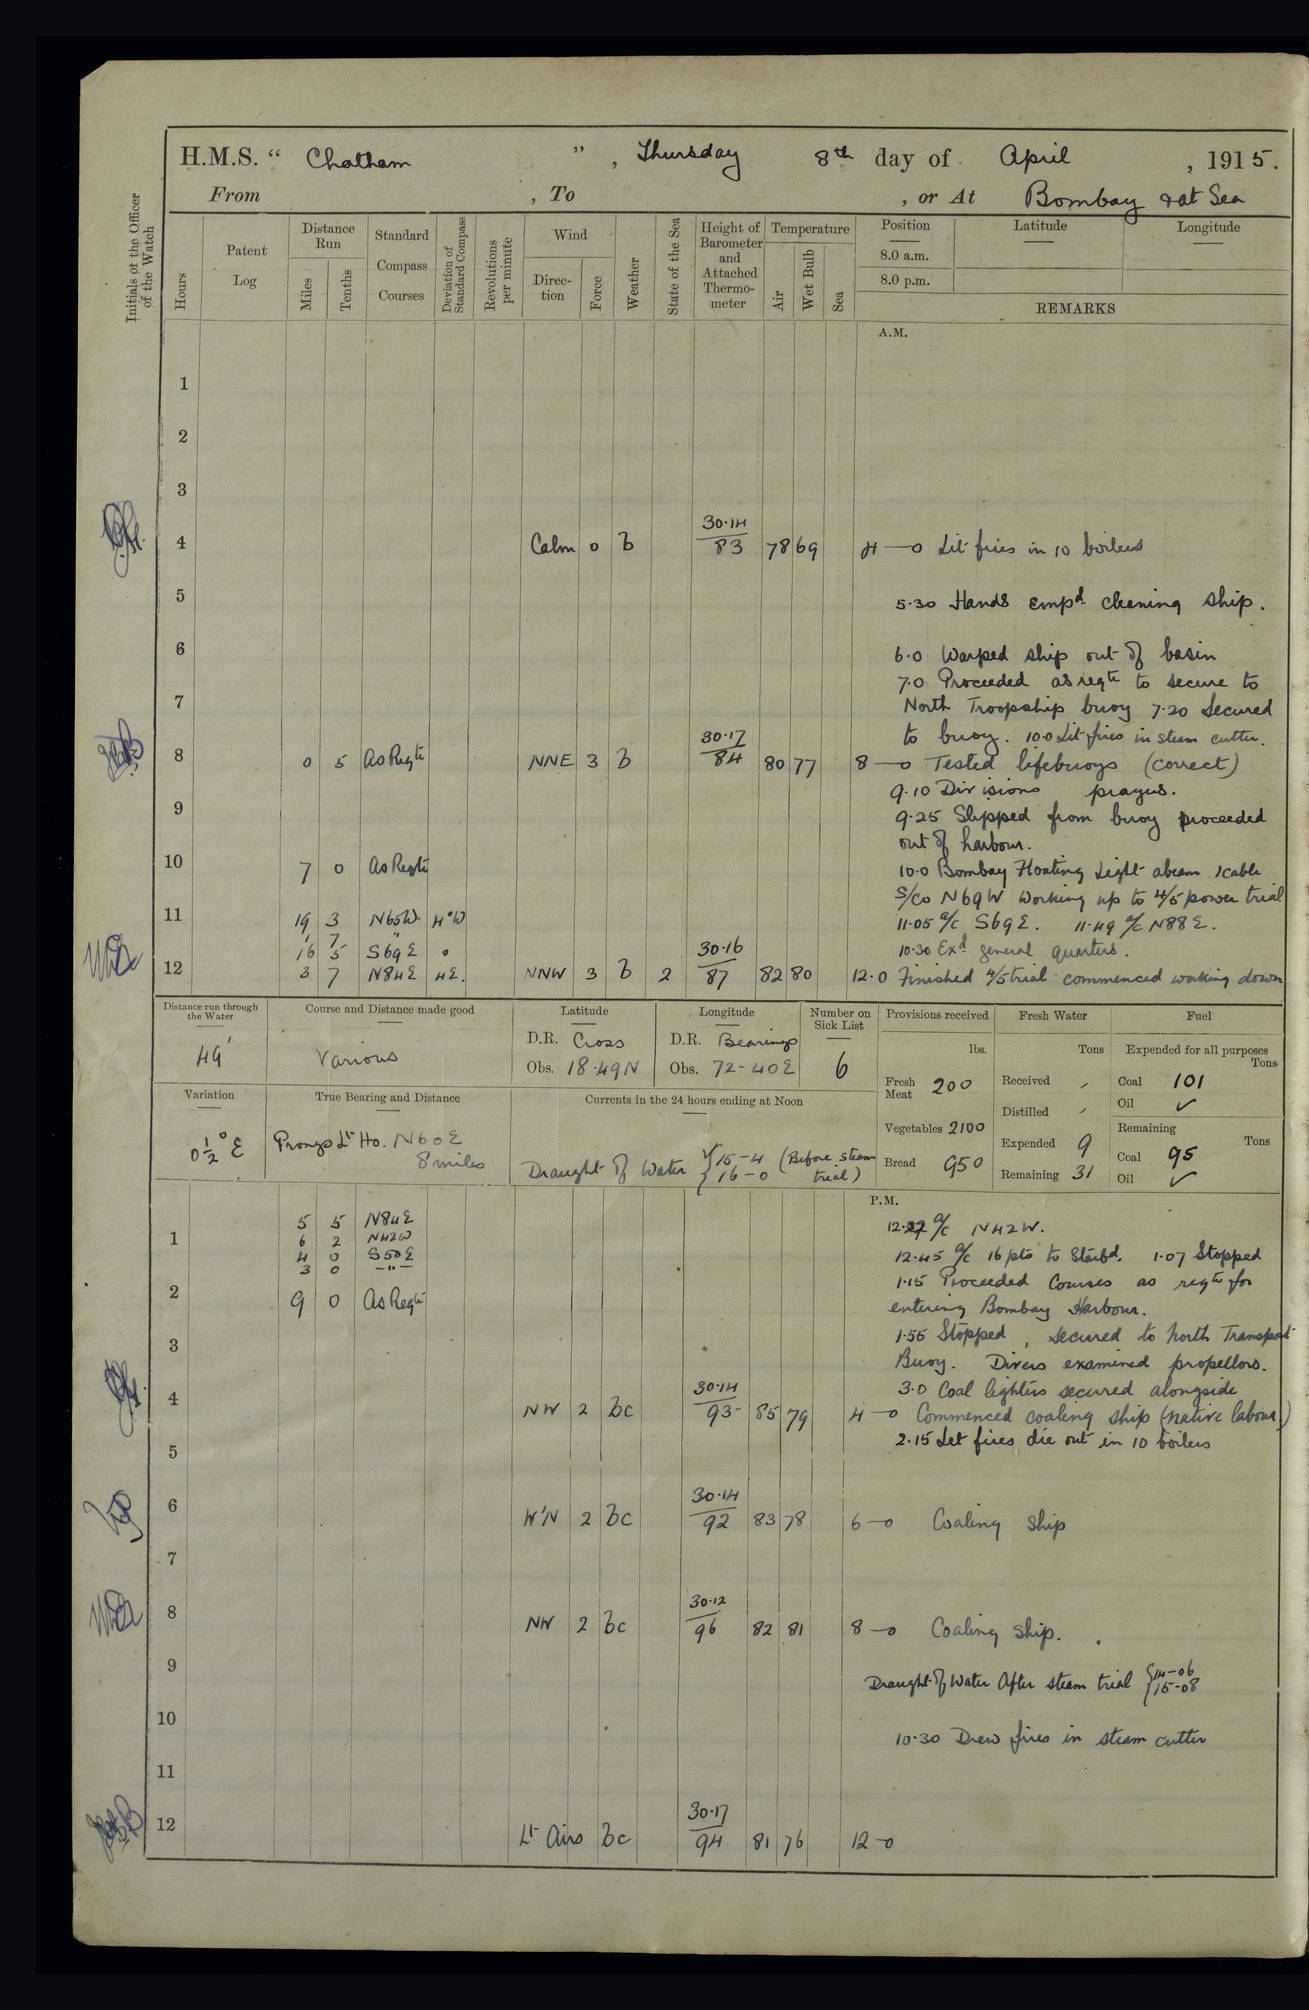 H.M.S. “ Chatham ” , Thursday 8th day of April , 1915.
From , To , or At Bombay & at Sea
Initials of the Officer of the Watch
Hours
Patent Log
Distance Run
Miles
Tenths
Standard Compass Courses
Deviation of Standard Compass
Revolutions per minute
Wind
Direction
Force
Weather
State of the Sea
Height of Barometer and Attached Thermometer
Temperature
Air
Wet Bulb
Sea
Position
8.0 a.m.
8.0 p.m.
Latitude
Longitude
REMARKS
A.M.
1
2
3
4 Calm 0 b 30.14 / 83 78 69 4—0 Lit fires in 10 boilers
5 5.30 Hands empd. cleaning ship.
6 6.0 Warped ship out of basin
7.0 Proceeded as reqte to secure to
7 North Troopship buoy 7.20 Secured
to buoy. 10.0 Lit fires in steam cutter.
8 0 5 As Reqte NNE 3 b 30.17 / 84 80 77 8—0 Tested lifebuoys (correct)
9.10 Divisions prayers.
9 9.25 Slipped from buoy proceeded
out of harbour.
10 7 0 As Reqte 10.0 Bombay Floating Light abeam 1 cable
S/Co N69W Working up to 4/5 power trial
11 19 3 N65W 4°W 11.05 a/c S69E. 11.49 a/c N88E.
1 7 "
16 5 S69E 0 10.30 Exd. general quarters.
12 3 7 N84E 4E. NNW 3 b 2 30.16 / 87 82 80 12.0 Finished 4/5 trial commenced working down
Distance run through the Water
49'
Course and Distance made good
Various
Latitude
D.R. Cross
Obs. 18.49N
Longitude
D.R. Bearings
Obs. 72-40E
Number on Sick List
6
Provisions received
lbs.
Fresh Meat 200
Vegetables 2100
Bread 950
Fresh Water
Tons
Received ,
Distilled ,
Expended 9
Remaining 31
Fuel
Expended for all purposes
Tons
Coal 101
Oil ✓
Remaining
Tons
Coal 95
Oil ✓
Variation
0 1/2° E
True Bearing and Distance
Prongs Lt Ho. N60E
8 miles
Currents in the 24 hours ending at Noon
Draught of Water { 15-4 (Before steam
16-0 trial)
P.M.
5 5 N84E 12.27 a/c N42W.
1 6 2 N42W
4 0 S50E 12.45 a/c 16 pts to Starbd. 1.07 Stopped
3 0 —"— 1.15 Proceeded Courses as reqte for
2 9 0 As Reqte entering Bombay Harbour.
3 1.55 Stopped, secured to North Transport
Buoy. Divers examined propellors.
3.0 Coal lighters secured alongside
4 NW 2 bc 30.14 / 93 85 79 4—0 Commenced coaling ship (native labour)
2.15 Let fires die out in 10 boilers
5
6 W'N 2 bc 30.14 / 92 83 78 6—0 Coaling ship
7
8 NW 2 bc 30.12 / 96 82 81 8—0 Coaling ship.
9 Draught of Water After steam trial { 14-06
15-08
10 10.30 Drew fires in steam cutter
11
12 Lt Airs bc 30.17 / 94 81 76 12—0